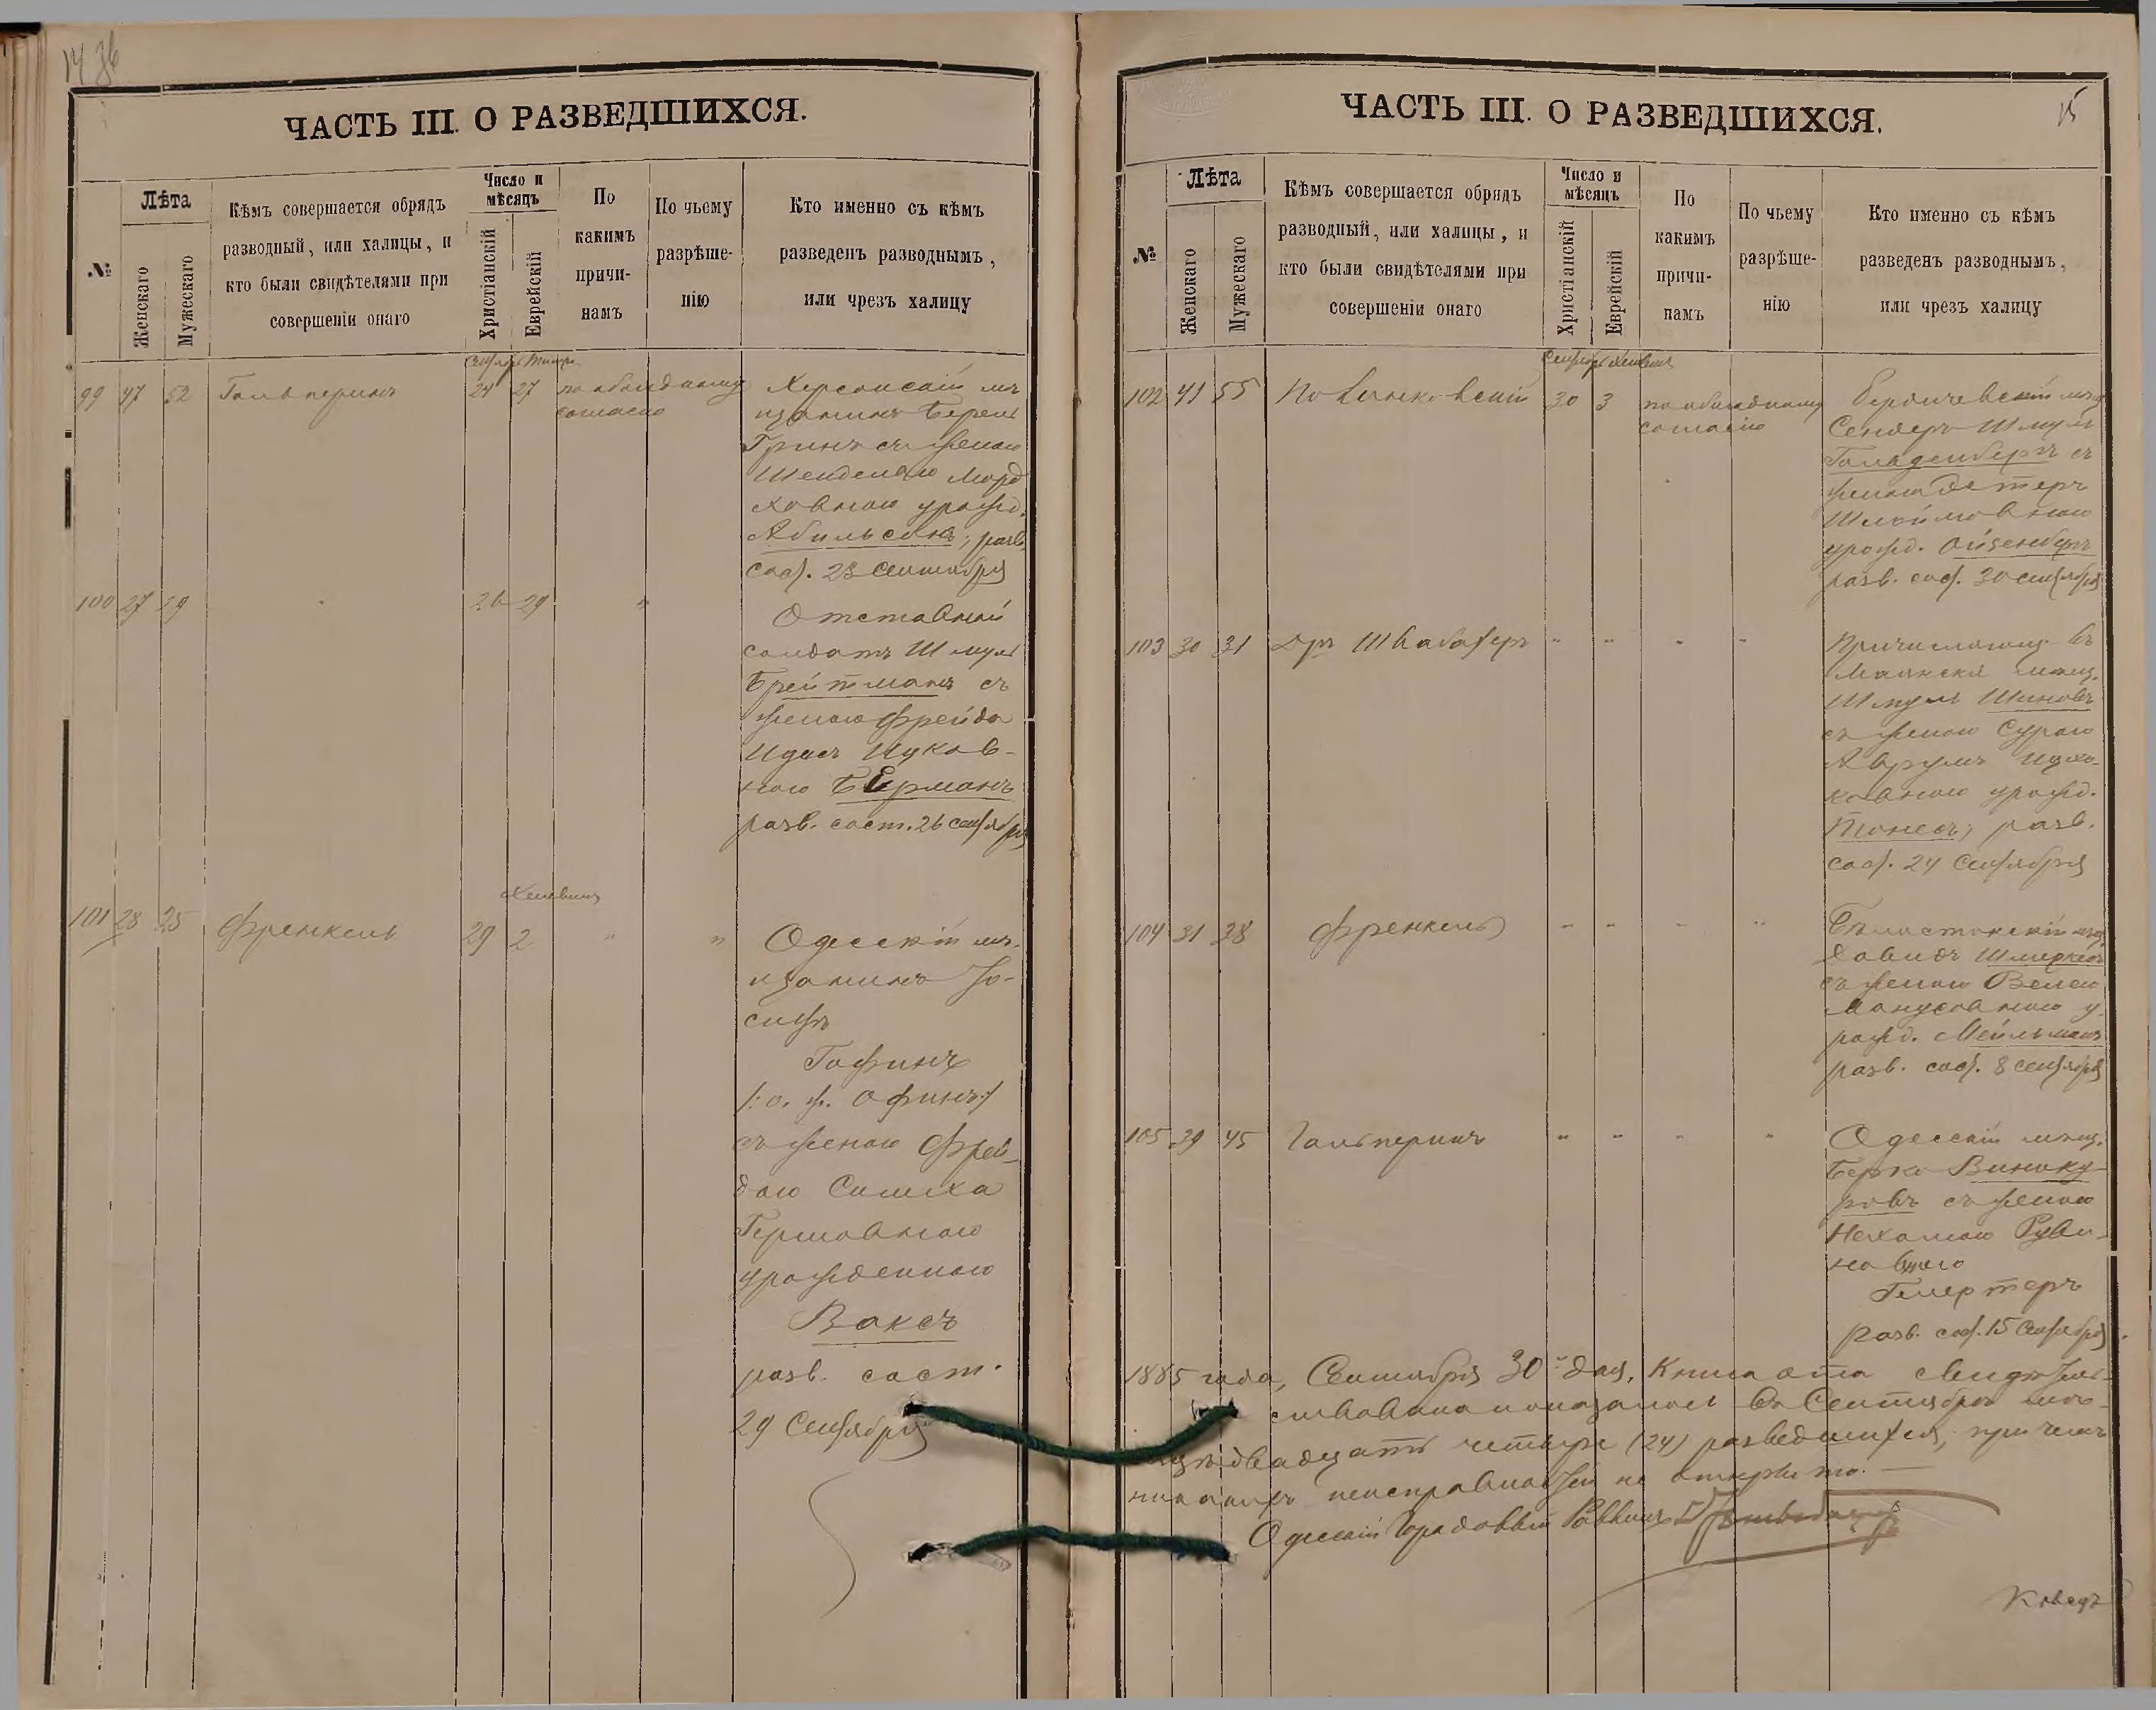 14 36
ЧАСТЬ III. О РАЗВЕДШИХСЯ.
№
Лѣта
Женскаго
Мужескаго
Кѣмъ совершается обрядъ
разводный, или халицы, и
кто были свидѣтелями при
совершеніи онаго
Число и
мѣсяцъ
Христіанскій
Еврейскій
По
какимъ
причи-
намъ
По чьему
разрѣше-
нію
Кто именно съ кѣмъ
разведенъ разводнымъ,
или чрезъ халицу
99 47 52 Гальперинъ 24 27 по обоюдному
согласію
Херсонскій мѣ
щанинъ Берель
Гринъ съ женою
Шейделью Морд
ховною урожд.
Абильсонъ; разв.
сост. 23 Сентября
100 27 29 26 29 "
Отставной
солдатъ Шмуль
Брейтманъ съ
женою Фрейда
Идесъ Ицков-
ною Берманъ
разв. сост. 26 сентября
Хешвинъ
101 28 25 Френкель 29 2 " "
Одесскій мѣ-
щанинъ Іо-
сифъ
Гофинъ
/: о. ж. Офинъ:/
съ женою Фрей-
дою Симха
Гершовною
урожденною
Ваксъ
разв. сост.
29 Сентября
ЧАСТЬ III. О РАЗВЕДШИХСЯ.
15
№
Лѣта
Женскаго
Мужескаго
Кѣмъ совершается обрядъ
разводный, или халицы, и
кто были свидѣтелями при
совершеніи онаго
Число и
мѣсяцъ
Христіанскій
Еврейскій
По
какимъ
причи-
намъ
По чьему
разрѣше-
нію
Кто именно съ кѣмъ
разведенъ разводнымъ,
или чрезъ халицу
Сентябрь Хешвинъ
102 41 55 30 3 по обоюдному
согласію
Бердичевскій мѣщ
Сендеръ Шмуль
Гольденбергъ съ
женою Эстеръ
урожд. Ойзенбергъ
разв. сост. 30 сентября
103 30 31 Дръ Швабахеръ " " " "
Причисляющ. въ
Маякскія мѣщ.
Шмуль Шиновъ
съ женою Сурою
Аврумъ Ицхо-
ковною урожд.
Тонесъ; разв.
сост. 24 Сентября
104 31 38 Френкель " " " "
Бѣлостокскій мѣщ
Давидъ Шмеркесъ
съ женою Велею
у-
рожд. Мейльманъ
разв. сост. 8 сентября
105 39 45 Гальперинъ " " " "
Одесскій мѣщ.
Берко Виноку-
ровъ съ женою
Нехамою Руви-
новною
Гелертеръ
разв. сост. 15 Сентября
1885 года, Сентября 30 дня, Книга эта свидѣтель-
ствована и оказалось въ Сентябрѣ мѣ-
сяцѣ двадцать четыре (24) разведшихся, при чемъ
никакихъ неисправностей не открыто. —
Одесскій Городовый Раввинъ Др Швабахеръ